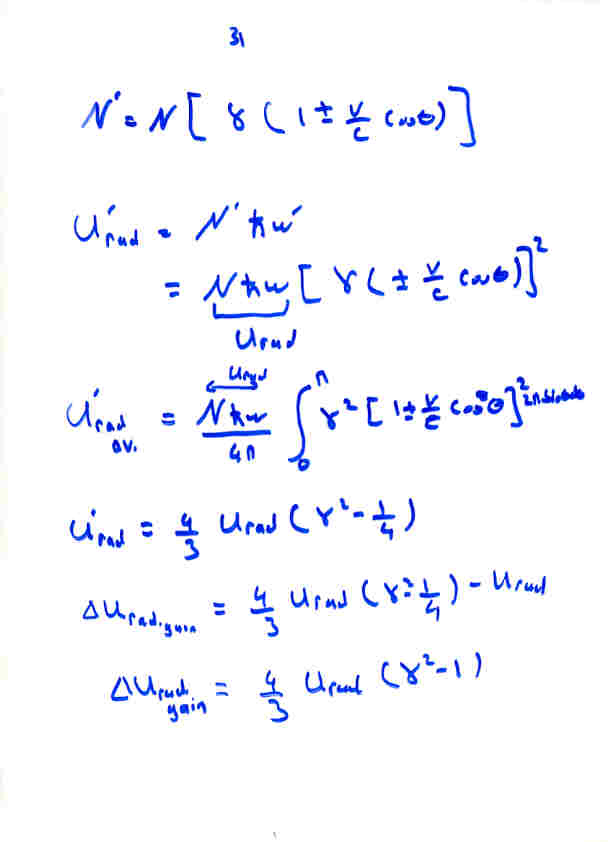 31
N' = N [ γ ( 1 ± v/c cosθ ) ]
U'rad = N' ħω'
= Nħω [ γ ( ± v/c cosθ ) ]²
Urad
Urad
U'rad av. = Nħω/4π ∫₀^π γ² [ 1 ± v/c cosθ ]² 2π sinθdθ
U'rad = 4/3 Urad ( γ² - 1/4 )
ΔUrad.gain = 4/3 Urad ( γ² - 1/4 ) - Urad
ΔUrad gain = 4/3 Urad ( γ² - 1 )